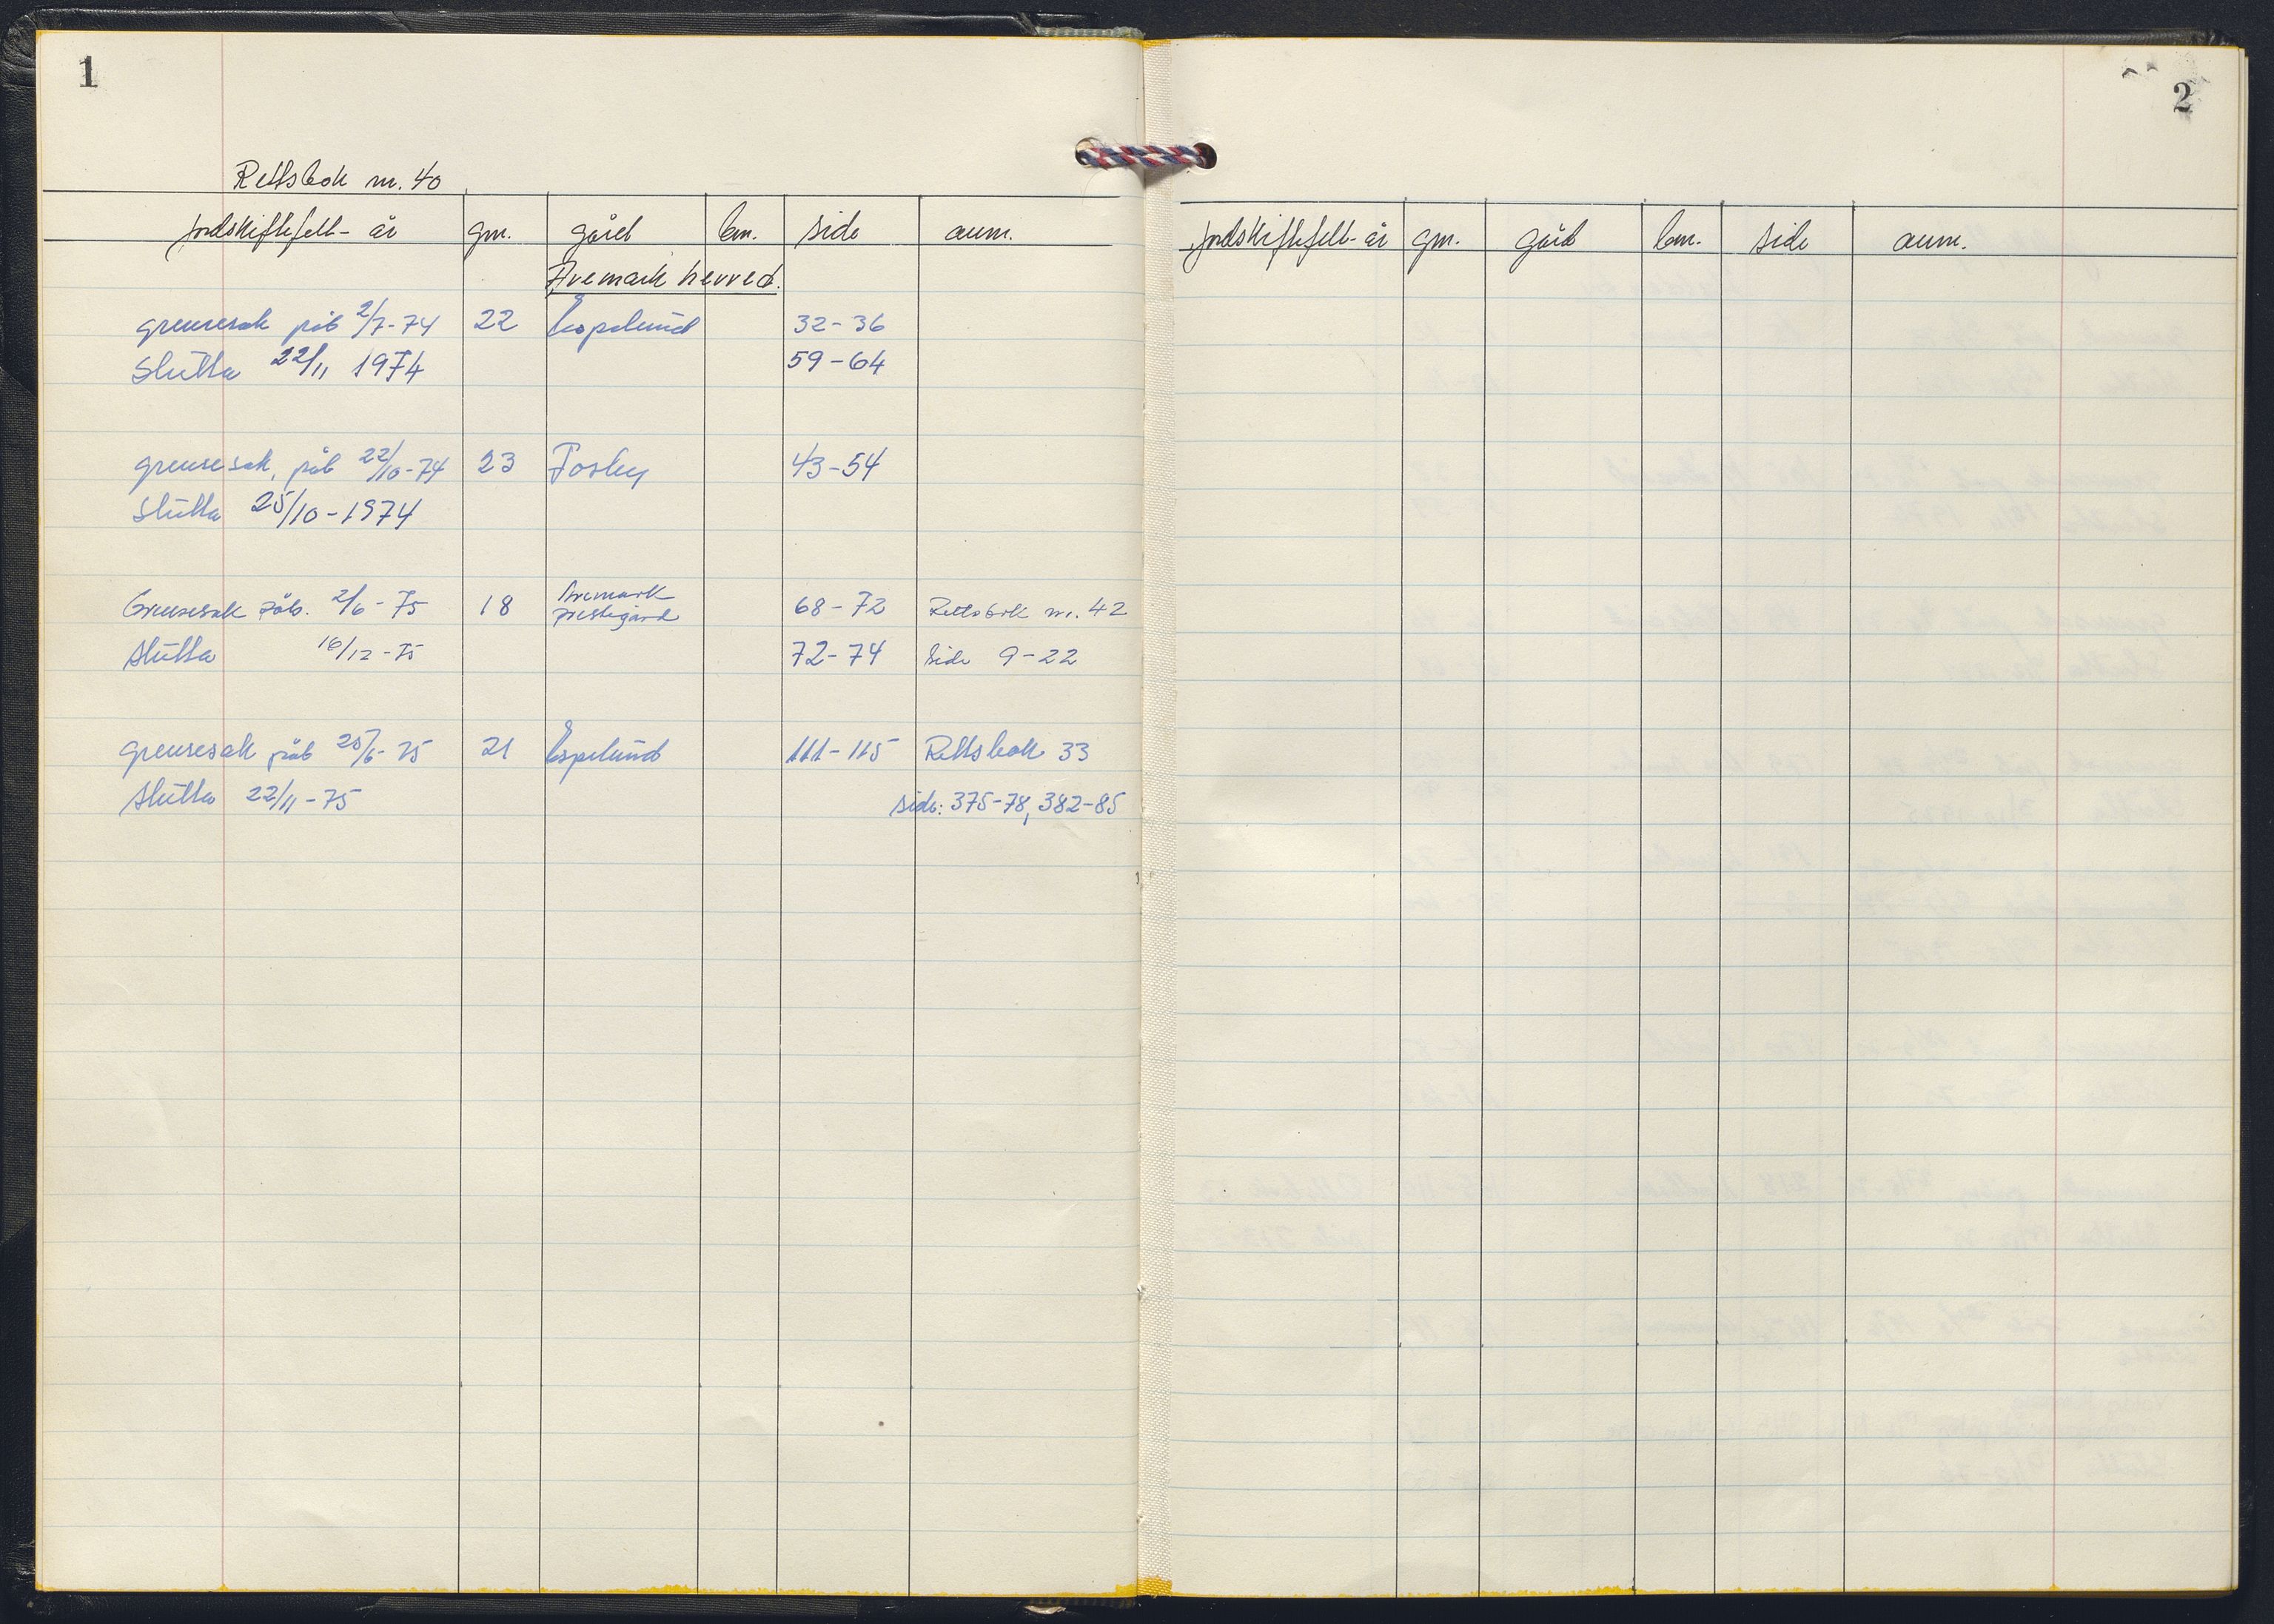 1
Rettsbok nr. 40
jordskiftefelt - år gnr. gård bnr. side anm.
Aremark herred.
grensesak påb 2/7-74 22 Espelund 32-36
Slutta 22/11 1974 59-64
grensesak, påb 22/10-74 23 Fosby 43-54
Slutta 25/10-1974
Grensesak påb. 2/6-75 18 Aremark prestegård 68-72 Rettsbok nr. 42
Slutta 16/12-75 72-74 Side 9-22
grensesak påb 25/6-75 21 Espelund 111-115 Rettsbok 33
Slutta 22/11-75 side: 375-78, 382-85
2
jordskiftefelt - år gnr. gård bnr. side anm.